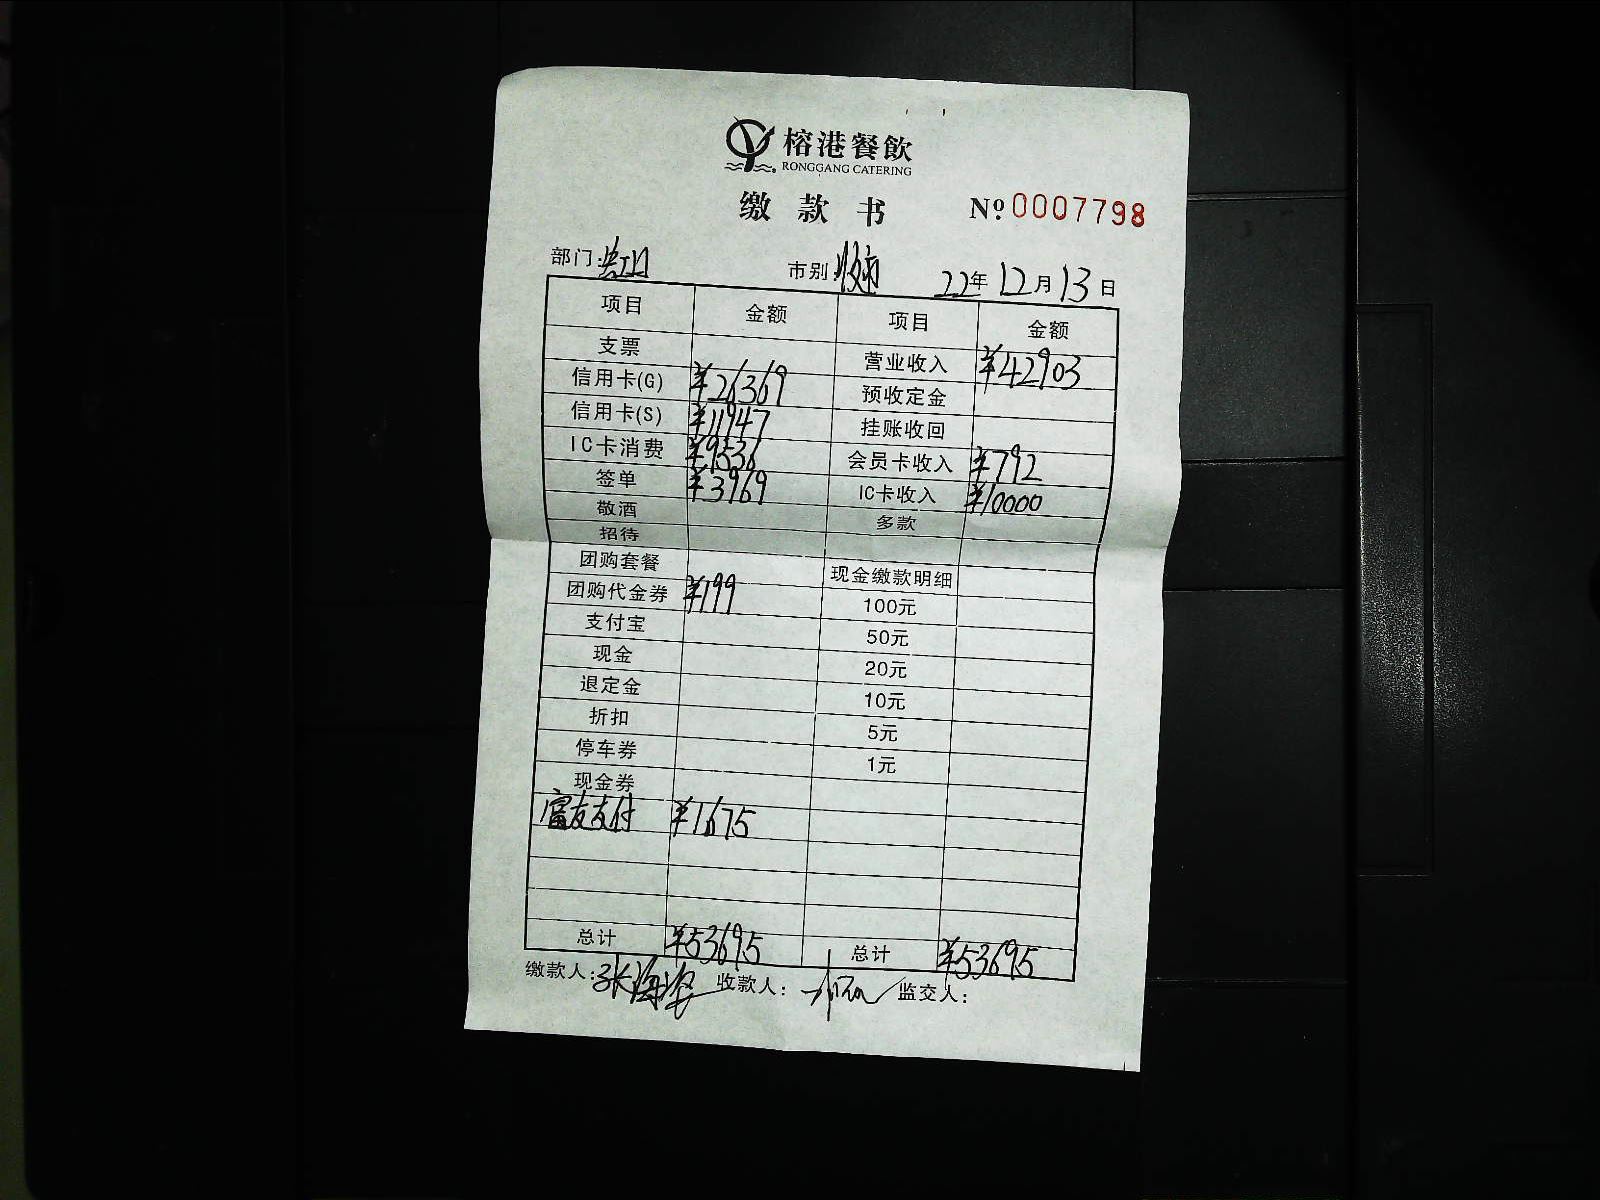 榕港餐飲
RONGGANG CATERING
缴款书 Nº 0007798
部门: 市别: 晚市 22年12月13日
项目 金额 项目 金额
支票 营业收入 ¥42903
信用卡(G) ¥26369 预收定金
信用卡(S) ¥11947 挂账收回
IC卡消费 ¥9536 会员卡收入 ¥792
签单 ¥3969 IC卡收入 ¥10000
敬酒 多款
招待
团购套餐 现金缴款明细
团购代金券 ¥199 100元
支付宝 50元
现金 20元
退定金 10元
折扣 5元
停车券 1元
现金券
富友支付 ¥1675
总计 ¥53695 总计 ¥53695
缴款人: 张海 收款人: 监交人: